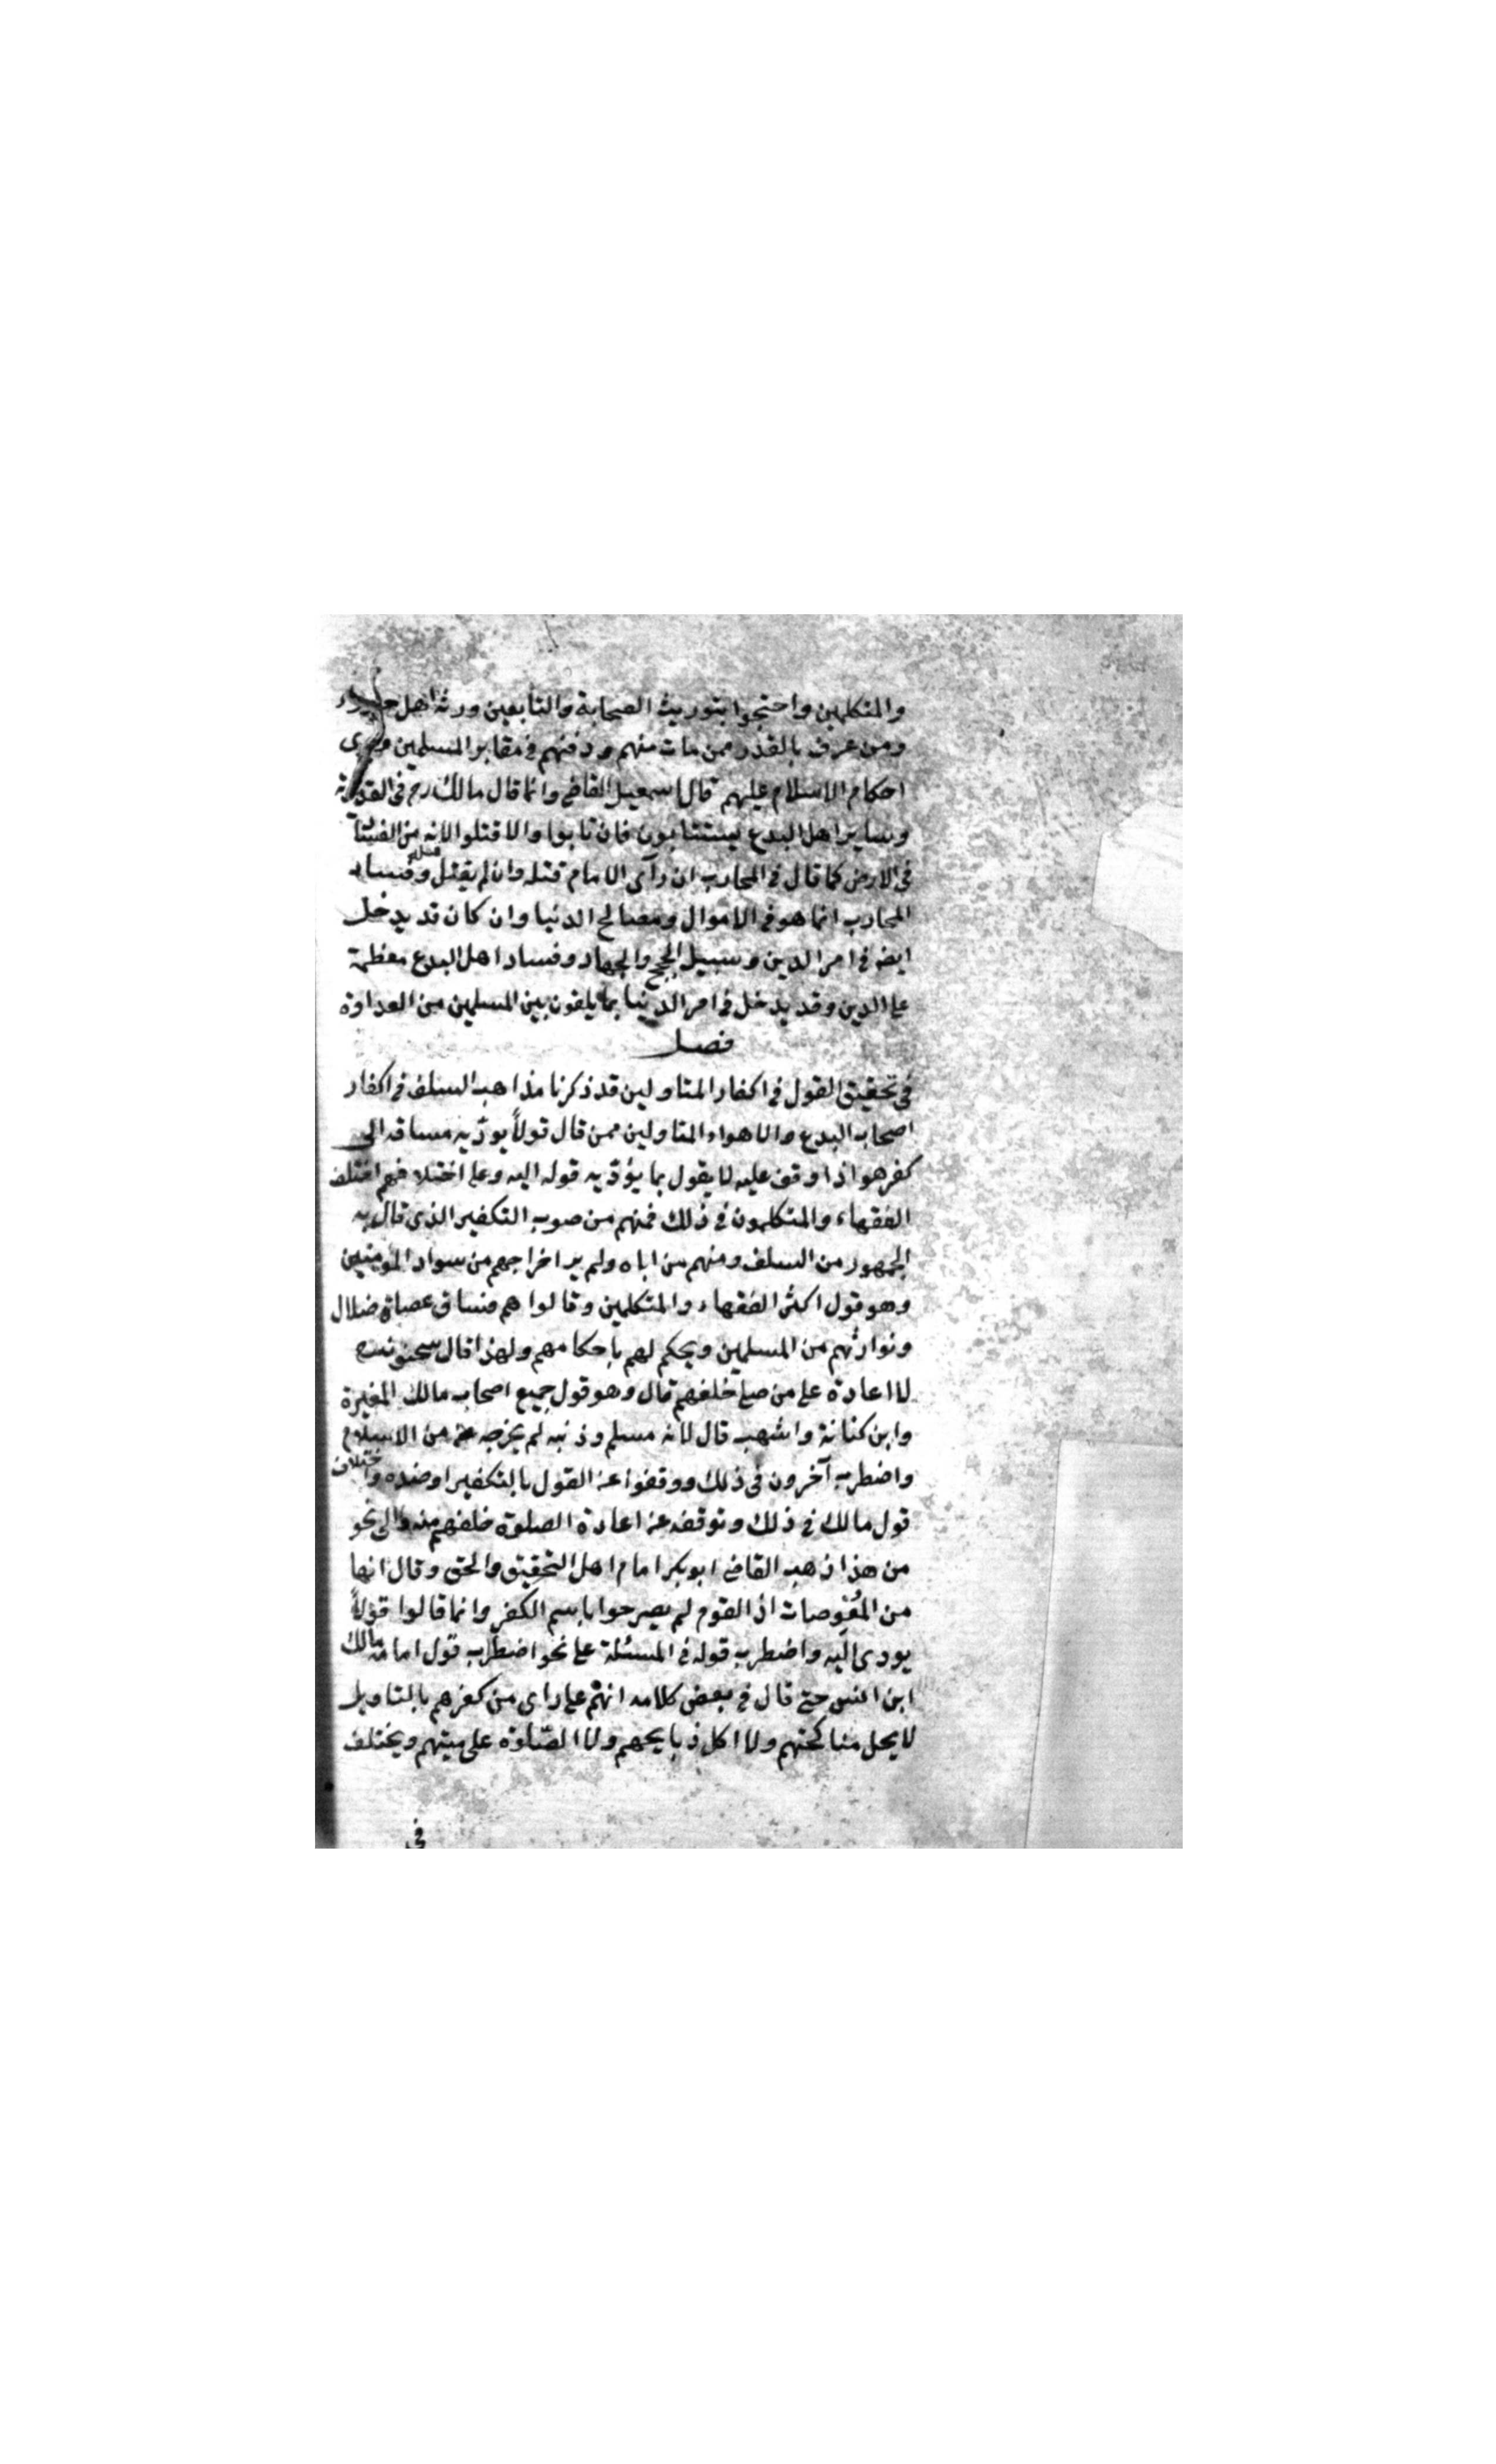 والمتكلمين واحتجوا بتوريث الصحابة والتابعين ورثة اهل حروراء
ومن عرف بالقدر ممن مات منهم ودفنهم في مقابر المسلمين وجرى
احكام الاسلام عليهم قال اسمعيل القاضي وانما قال مالك رح في القدرية
وساير اهل البدع يستتابون فان تابوا والا قتلوا لانه من الفساد
في الارض كما قال في المحارب ان رآى الامام قتله وان لم يقتل قتله وفساد
المحارب انما هو في الاموال ومصالح الدنيا وان كان قد يدخل
ايضا في امر الدين وسبيل الحج والجهاد وفساد اهل البدع معظمه
على الدين وقد يدخل في امر الدنيا بما يلقون بين المسلمين من العداوة
فصل
في تحقيق القول في اكفار المتاولين قد ذكرنا مذاهب السلف في اكفار
اصحاب البدع والاهواء المتاولين ممن قال قولاً يوديه مساقه الى
كفر هو اذا وقف عليه لا يقول بما يؤديه قوله اليه وعلى اختلافهم اختلف
الفقهاء والمتكلمون في ذلك فمنهم من صوب التكفير الذي قال به
الجمهور من السلف ومنهم من اباه ولم ير اخراجهم من سواد المؤمنين
وهو قول اكثر الفقهاء والمتكلمين وقالوا هم فساق عصاة ضلال
ونوارثهم من المسلمين ويحكم لهم باحكامهم ولهذا قال سحنون
لا اعادة على من صلى خلفهم قال وهو قول جميع اصحاب مالك المغيرة
وابن كنانة واشهب قال لانه مسلم وذنبه لم يخرجه من الاسلام
واضطرب آخرون في ذلك ووقفوا عن القول بالتكفير اوضده واختلاف
قول مالك في ذلك وتوقفه عن اعادة الصلوة خلفهم منه والى نحو
من هذا ذهب القاضي ابو بكر امام اهل التحقيق والحق وقال انها
من المعوصات اذ القوم لم يصرحوا باسم الكفر وانما قالوا قولاً
يودى اليه واضطرب قوله في المسئلة على نحو اضطرب قول امامه مالك
ابن انس حتى قال في بعض كلامه انهم على راى من كفرهم بالتاويل
لا يحل مناكحتهم ولا اكل ذبايحهم ولا الصلوة على ميتهم ويختلف
في